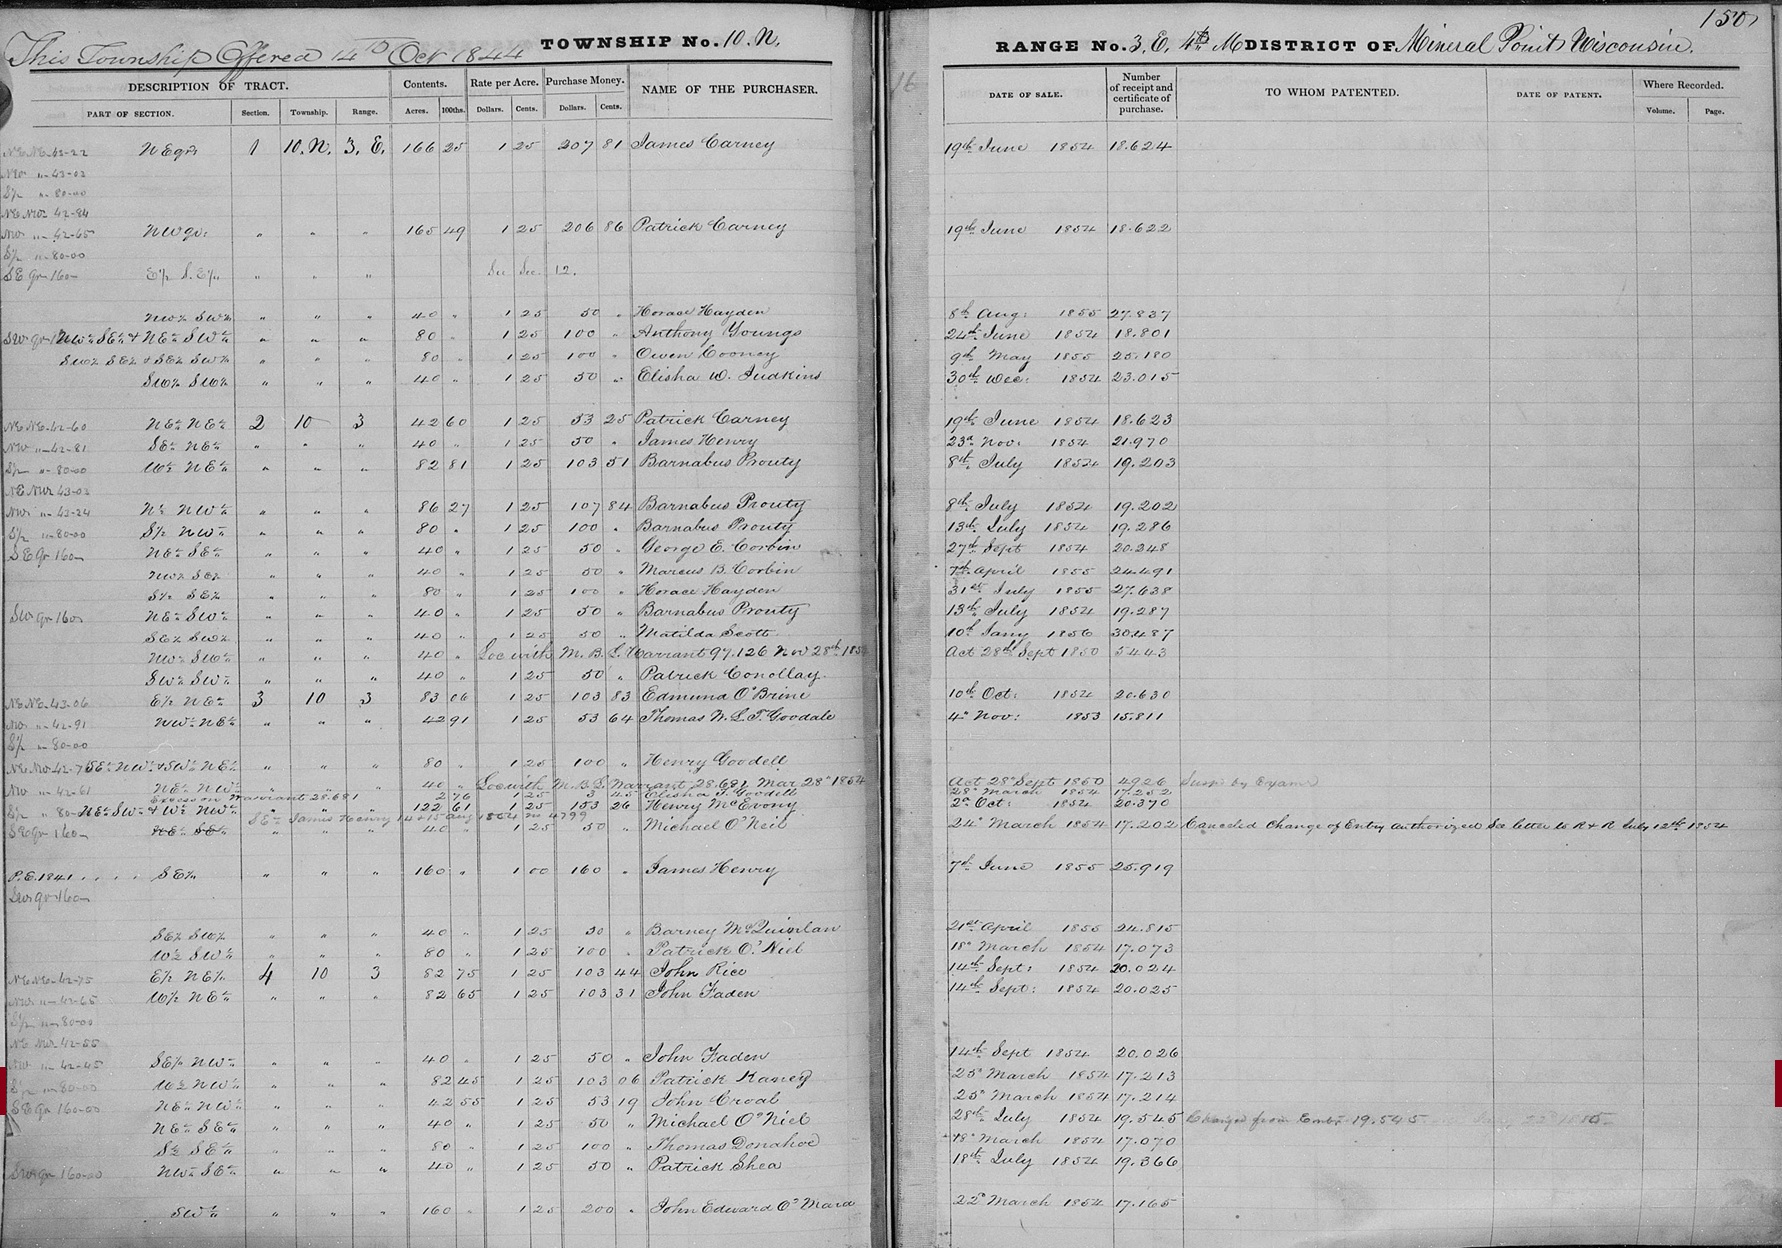 This Township Offered 14th Oct 1844 TOWNSHIP No. 10. N.
DESCRIPTION OF TRACT. Contents. Rate per Acre. Purchase Money. NAME OF THE PURCHASER.
PART OF SECTION. Section. Township. Range. Acres. 100ths. Dollars. Cents. Dollars. Cents.
NE NE 42-22 NE qr 1 10. N. 3. E. 166 25 1 25 207 81 James Carney
NW " 43-03
S½ " 80-00
NE NW 42-84
NW " 42-65 NW qr: " " " 165 49 1 25 206 86 Patrick Carney
S½ " 80-00
SE qr 160 E½ S.E¼ " " " See Sec 12.
NW¼ SW¼ " " " 40 " 1 25 50 " Horace Hayden
SW qr NW¼ SE¼ & NE¼ SW¼ " " " 80 " 1 25 100 " Anthony Youngs
SW¼ SE¼ & SE¼ SW¼ " " " 80 " 1 25 100 " Owen Cooney
SW¼ SW¼ " " " 40 " 1 25 50 " Elisha W. Judkins
NE NE 42-60 NE¼ NE¼ 2 10 3 42 60 1 25 53 25 Patrick Carney
NW " 42-81 SE¼ NE¼ " " " 40 " 1 25 50 " James Henry
S½ " 80-00 W½ NE¼ " " " 82 81 1 25 103 51 Barnabus Prouty
NE NW 43-03
NW " 43-24 N½ NW¼ " " " 86 27 1 25 107 84 Barnabus Prouty
S½ " 80-00 S½ NW¼ " " " 80 " 1 25 100 " Barnabus Prouty
SE qr 160 NE¼ SE¼ " " " 40 " 1 25 50 " George E. Corbin
NW¼ SE¼ " " " 40 " 1 25 50 " Marcus B. Corbin
S½ SE¼ " " " 80 " 1 25 100 " Horace Hayden
SW qr 160 NE¼ SW¼ " " " 40 " 1 25 50 " Barnabus Prouty
SE¼ SW¼ " " " 40 " 1 25 50 " Matilda Scott
NW¼ SW¼ " " " 40 " Loc with M. B. L. Warrant 97.126 Nov 28th
SW¼ SW¼ " " " 40 " 1 25 50 " Patrick Conollay
NE NE 43-06 E½ NE¼ 3 10 3 83 06 1 25 103 83 Edmund O'Brine
NW " 42-91 NW¼ NE¼ " " " 42 91 1 25 53 64 Thomas W. L. T. Goodale
S½ " 80-00
NE NW 42-76 SE¼ NW¼ & SW¼ NE¼ " " " 80 " 1 25 100 " Henry Goodell
NW " 42-61 NE¼ NW¼ " " " 40 " Loc with M. B. L. Warrant 28.681 Mar 28th 1854
Excess on Warrant 28.681 2 76 1 25 3 45 Elisha T. Goodell
S½ " 80 NE¼ SW¼ & W½ NW¼ " " " 122 61 1 25 153 26 Henry McEvony
SE¼ James Henry 14 & 15 Aug 1854 no 4799
SE qr 160 NE¼ SE¼ " " " 40 " 1 25 50 " Michael O'Neil
P.E. 1841 . . . . SE¼ " " " 160 " 1 00 160 " James Henry
SW qr 160
SE¼ SW¼ " " " 40 " 1 25 50 " Barney McQuinlan
W½ SW¼ " " " 80 " 1 25 100 " Patrick O'Niel
NE NE 42-75 E½ NE¼ 4 10 3 82 75 1 25 103 44 John Rice
NW " 42-65 W½ NE¼ " " " 82 65 1 25 103 31 John Faden
S½ " 80-00
NE NW 42-55
NW " 42-45 SE¼ NW¼ " " " 40 " 1 25 50 " John Faden
S½ " 80-00 W½ NW¼ " " " 82 45 1 25 103 06 Patrick Raney
SE qr 160-00 NE¼ NW¼ " " " 42 55 1 25 53 19 John Croal
NE¼ SE¼ " " " 40 " 1 25 50 " Michael O'Niel
S½ SE¼ " " " 80 " 1 25 100 " Thomas Donahoe
SW qr 160-00 NW¼ SE¼ " " " 40 " 1 25 50 " Patrick Shea
SW¼ " " " 160 " 1 25 200 " John Edward O'Mara
150
16 RANGE No. 3. E. 4th M DISTRICT OF Mineral Point Wisconsin.
DATE OF SALE. Number of receipt and certificate of purchase. TO WHOM PATENTED. DATE OF PATENT. Where Recorded.
Volume. Page.
19th June 1854 18.624
19th June 1854 18.622
8th Aug: 1855 27.837
24th June 1854 18.801
9th May 1855 25.180
30th Dec: 1854 23.015
19th June 1854 18.623
23d Nov: 1854 21.970
8th July 1854 19.203
8th July 1854 19.202
13th July 1854 19.286
27th Sept 1854 20.348
7th April 1855 24.491
31st July 1855 27.638
13th July 1854 19.287
10th Jany 1856 30.487
Act 28th Sept 1850 5443
10th Oct: 1854 20.630
4th Nov: 1853 15.811
Act 28th Sept 1850 4926 Susp by Exam
28th March 1854 17.252
2d Oct: 1854 20.370
24th March 1854 17.202 Canceled Change of Entry authorized See letter to R & R July 12th 1854
7th June 1855 25.919
21st April 1855 24.815
18th March 1854 17.073
14th Sept: 1854 20.024
14th Sept: 1854 20.025
14th Sept 1854 20.026
25th March 1854 17.213
25th March 1854 17.214
28th July 1854 19.545 Changed from 19.545
18th March 1854 17.070
18th July 1854 19.366
22d March 1854 17.165